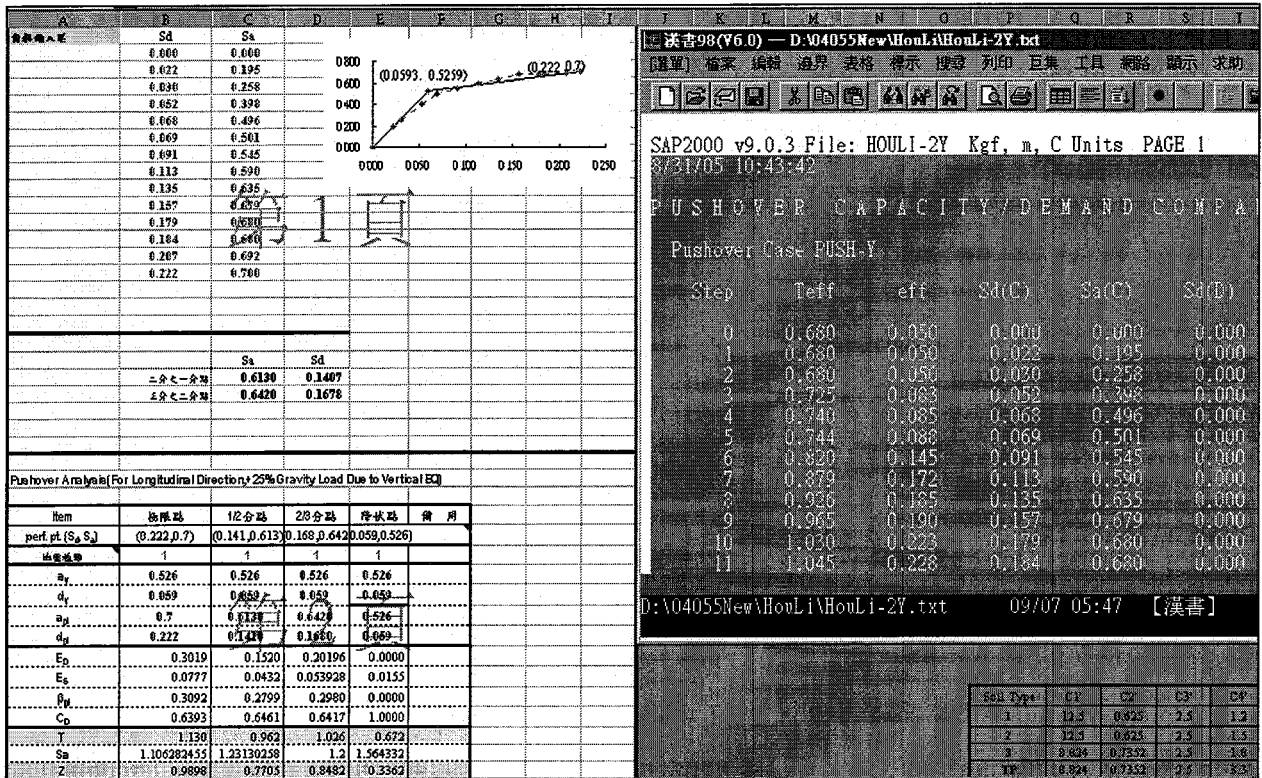 A B C D E F G H I
Sd Sa
0.000 0.000
0.022 0.195
0.030 0.258
0.052 0.398
0.068 0.496
0.069 0.501
0.091 0.545
0.113 0.590
0.135 0.635
0.157 0.679
0.179 0.680
0.184 0.680
0.207 0.692
0.222 0.700
第 1 頁
0.800
0.600
0.400
0.200
0.000
(0.0593, 0.5259)
(0.222,0.7)
0.000 0.050 0.100 0.150 0.200 0.250
Sa Sd
二分之一分點 0.6130 0.1407
三分之二分點 0.6420 0.1678
Pushover Analysis(For Longitudinal Direction,+25%Gravity Load Due to Vertical EQ)
Item 極限點 1/2分點 2/3分點 降伏點 備 用
perf. pt. (Sd, Sa) (0.222,0.7) (0.141,0.613) 0.168,0.642 0.059,0.526)
1 1 1 1
ay 0.526 0.526 0.526 0.526
dy 0.059 0.059 0.059 0.059
api 0.7 0.6130 0.6420 0.526
dpi 0.222 0.1410 0.1680 0.059
第 2 頁
ED 0.3019 0.1520 0.20196 0.0000
ES 0.0777 0.0432 0.053928 0.0155
βpi 0.3092 0.2799 0.2980 0.0000
CD 0.6393 0.6461 0.6417 1.0000
T 1.130 0.962 1.026 0.672
Sa 1.106282455 1.23130258 1.2 1.564332
Z 0.9898 0.7705 0.8482 0.3362
J K L M N O P Q R S T
漢書98(V6.0) — D:\04055New\HouLi\HouLi-2Y.txt
[選單] 檔案 編輯 邊界 表格 標示 搜尋 列印 巨集 工具 網路 顯示 求助
SAP2000 v9.0.3 File: HOULI-2Y Kgf, m, C Units PAGE 1
8/31/05 10:43:42
P U S H O V E R C A P A C I T Y / D E M A N D C O M P A
Pushover Case PUSH-Y
Step Teff eff Sd(C) Sa(C) Sd(D)
0 0.680 0.050 0.000 0.000 0.000
1 0.680 0.050 0.022 0.195 0.000
2 0.680 0.050 0.030 0.258 0.000
3 0.725 0.052 0.398 0.000
4 0.740 0.085 0.068 0.496 0.000
5 0.744 0.088 0.069 0.501 0.000
6 0.145 0.091 0.545 0.000
7 0.172 0.113 0.590 0.000
8 0.185 0.135 0.635 0.000
9 0.965 0.190 0.157 0.679 0.000
10 1.030 0.223 0.179 0.680 0.000
11 1.045 0.228 0.184 0.680 0.000
D:\04055New\HouLi\HouLi-2Y.txt 09/07 05:47 【漢書】
Soil Type C1 C2 C3 C4
1 12.5 0.625 2.5 1.2
2 12.5 0.625 2.5 1.5